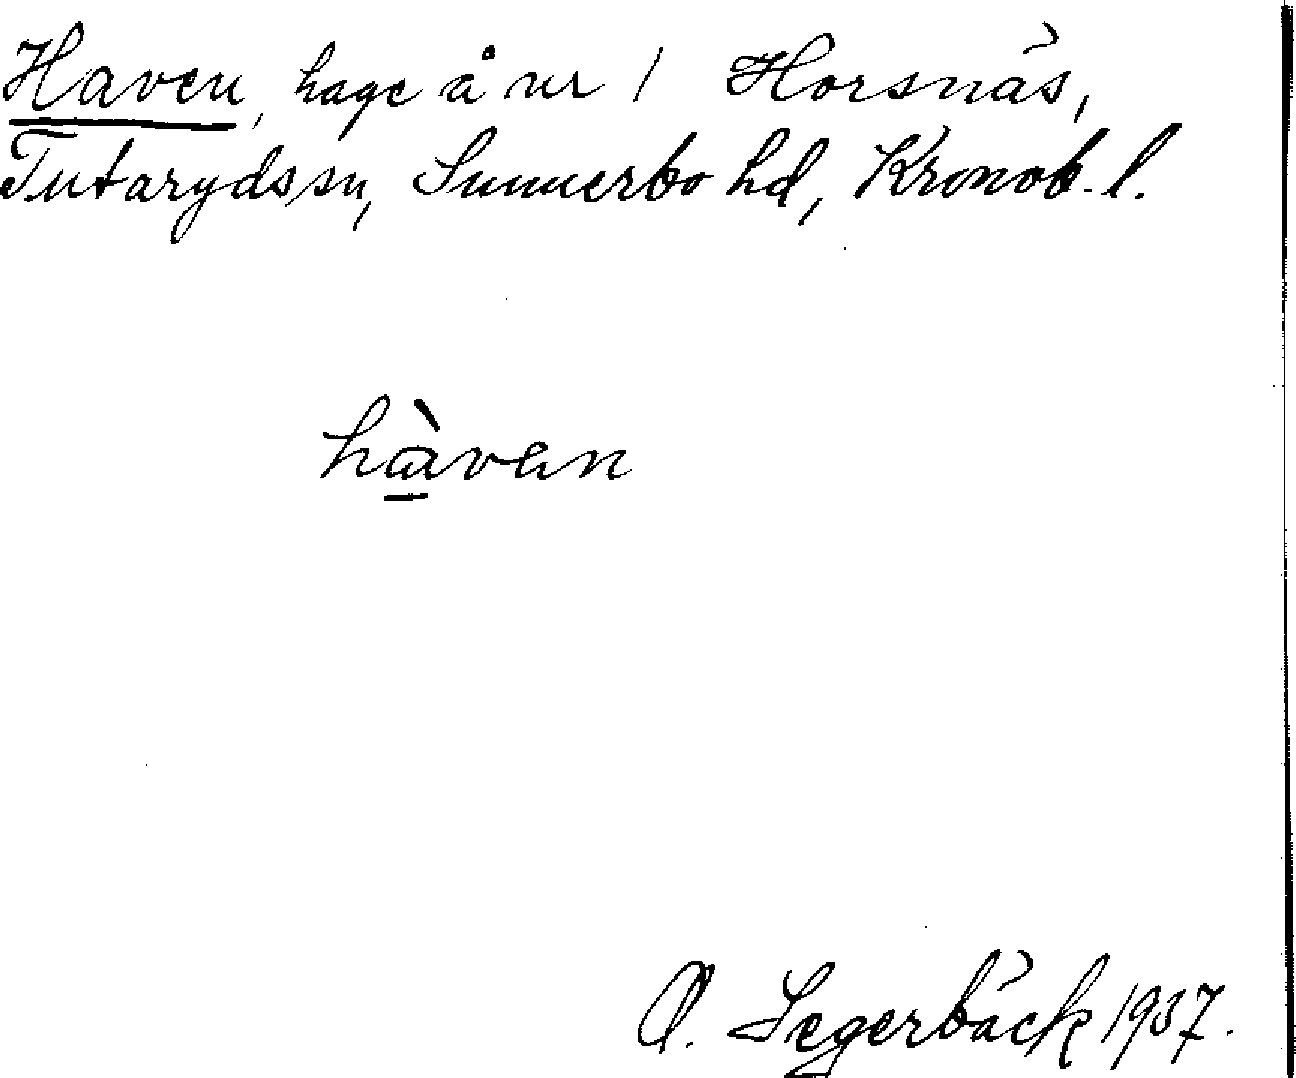 Haven, hage å nr 1 Horsnäs,
Tutaryds sn, Sunnerbo hd, Kronob. l.
hàven
O. Segerbäck 1937.